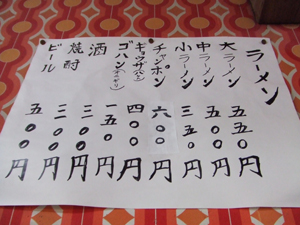 ラーメン
大ラーメン 五五〇円
中ラーメン 五〇〇円
小ラーメン 三五〇円
チャンポン 六〇〇円
ギョウザ 四〇〇円
ゴハン(オニギリ) 一五〇円
酒 円
焼酎 円
ビール 五〇〇円